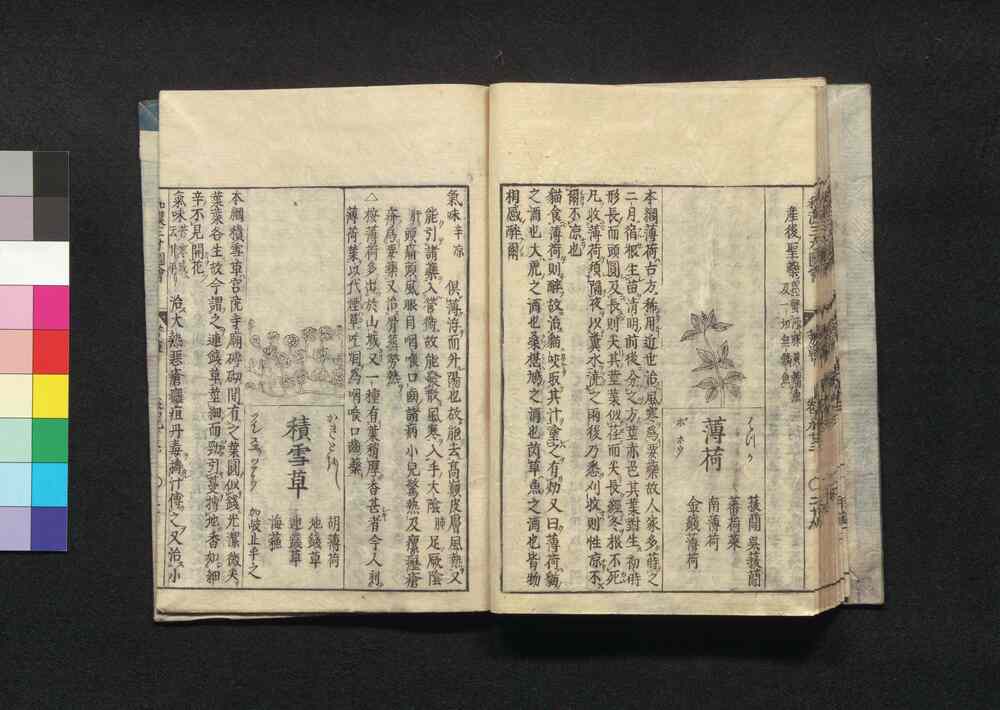 産後聖藥
薄荷
菝䕅 吳菝䕅
蕃荷菜
南薄荷
金錢薄荷
本綱薄荷古方稀用近也治風寒爲要藥故人家多蒔之
二月宿根生苗清明前後分之方莖赤色其葉對生初時
形長而頭圓及長則尖其莖葉似荏而尖長經冬根不死
凡收薄荷須隔夜以糞水澆之雨後乃悉刈收則性凉不
爾不凉也
猫食薄荷則醉故治猫咬取其汁塗之有効又曰薄荷猫
之酒也犬虎之酒也桑椹鳩之酒也茵草魚之酒也皆物
相感醉爾
氣味 辛凉 俱薄浮而外陽也故能去高巓皮膚風熱又
能引諸藥入營衛故能發散風寒入手太陰 肺 足厥陰
肝 頭痛頭風眼目咽喉口齒諸病小兒驚熱及瘰癧瘡
疥爲要藥又治骨蒸勞熱
△按薄荷多出於山城又一種有葉稍厚香甚者令人刻
薄荷葉以代煙草吃謂爲咽喉口齒藥
積雪草
胡薄荷
地錢草
連錢草
海蘓
本綱積雪草宮院寺廟磚砌間有之葉圓似錢光潔微尖
葉葉各生故今謂之連錢草莖細而勁引蔓搏地香如細
辛不見開花
治大熱惡瘡癰疽丹毒擣汁傅之又治小